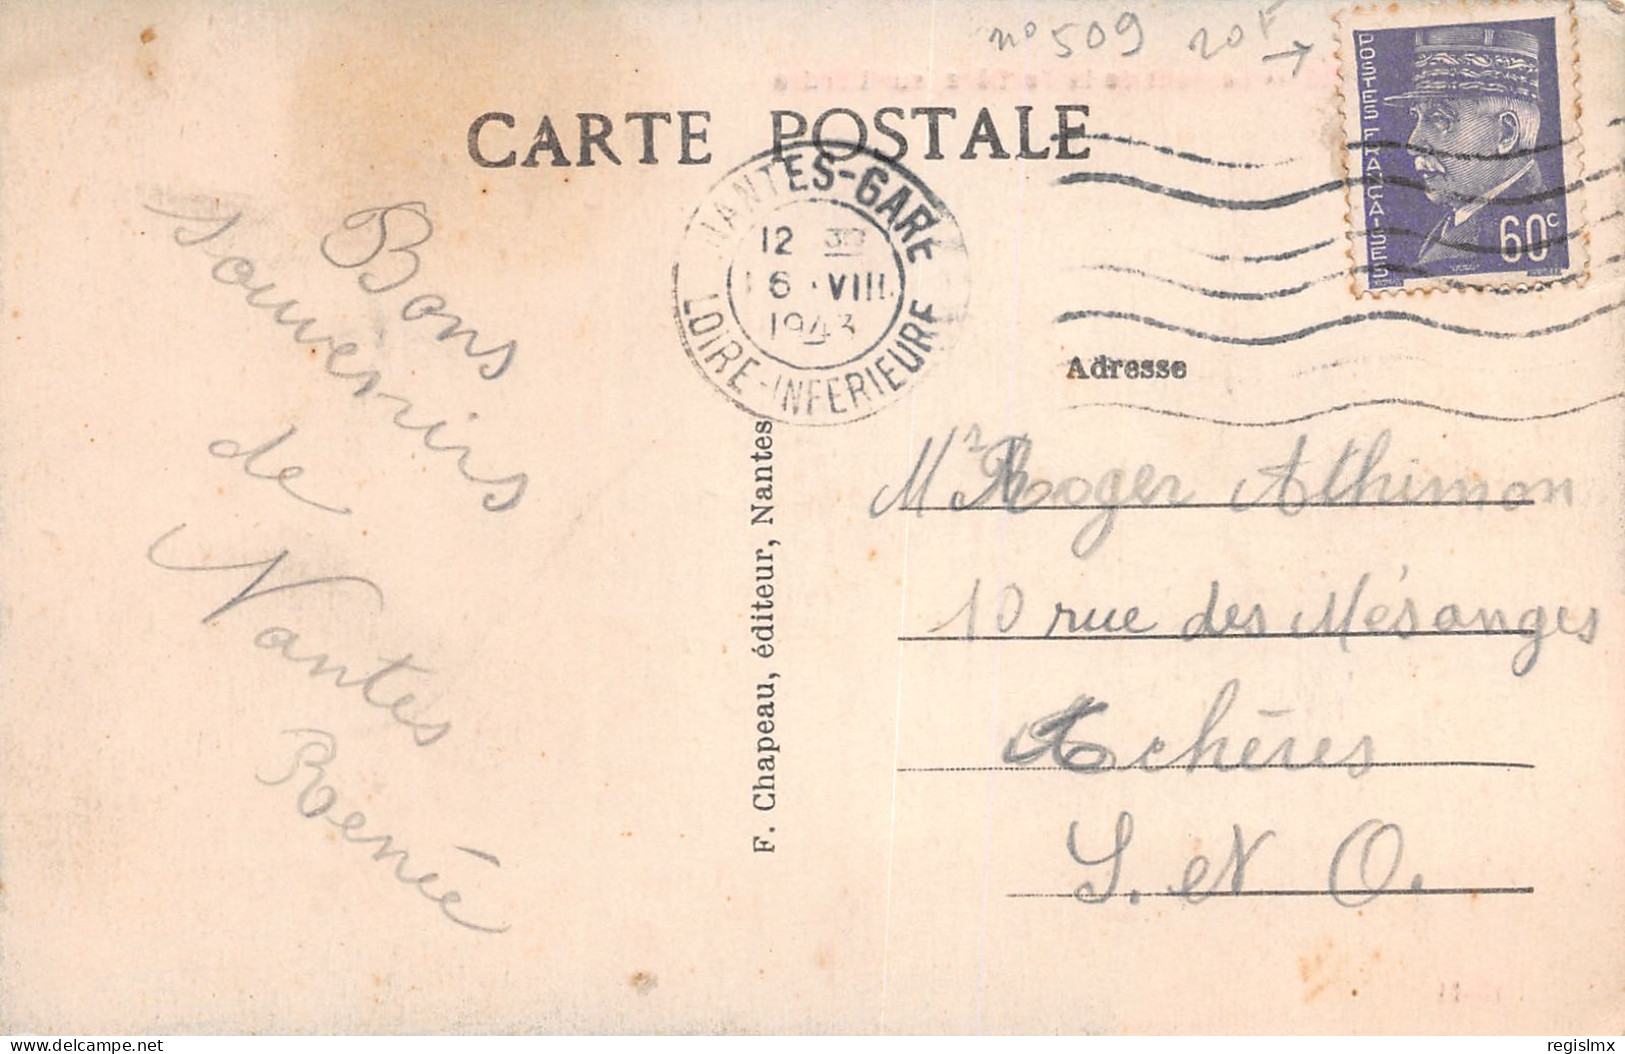 n° 509 20F
CARTE POSTALE
POSTES FRANÇAISES
60c
NANTES-GARE
12 30
16 · VIII
1943
LOIRE-INFERIEURE
Bons
souvenirs
de
Nantes
Renée
F. Chapeau, éditeur, Nantes
Adresse
Mr Roger Athimon
10 rue des Mésanges
Achères
S. et O.
delcampe.net
regislmx